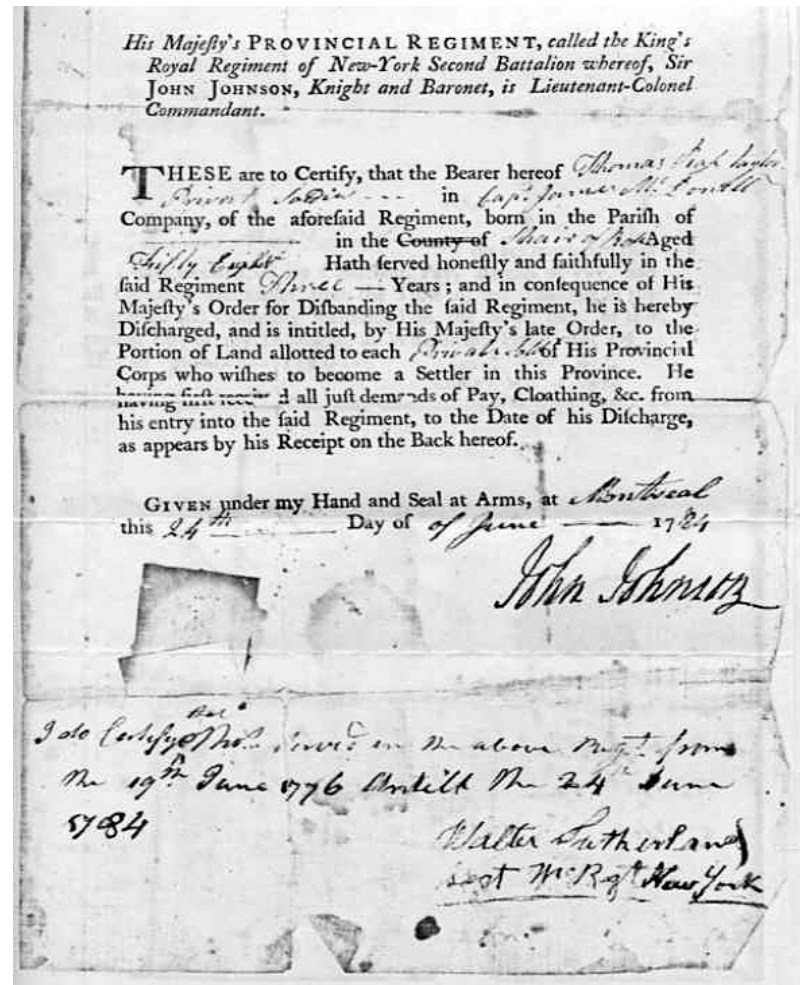 His Majeſty's PROVINCIAL REGIMENT, called the King's
Royal Regiment of New-York Second Battalion whereof, Sir
JOHN JOHNSON, Knight and Baronet, is Lieutenant-Colonel
Commandant.
THESE are to Certify, that the Bearer hereof Thomas Taylor
Privat in Capt James Mc
Company, of the aforeſaid Regiment, born in the Pariſh of
in the County of Aged
Fifty Eight Hath ſerved honeſtly and faithfully in the
ſaid Regiment Three Years; and in conſequence of His
Majeſty's Order for Diſbanding the ſaid Regiment, he is hereby
Diſcharged, and is intitled, by His Majeſty's late Order, to the
Portion of Land allotted to each of His Provincial
Corps who wiſhes to become a Settler in this Province. He
having firſt all juſt demands of Pay, Cloathing, &c. from
his entry into the ſaid Regiment, to the Date of his Diſcharge,
as appears by his Receipt on the Back hereof.
GIVEN under my Hand and Seal at Arms, at Montreal
this 24th Day of of June 1784
John Johnson
I do Certify Thos. in the above Regt. from
the 19th June 1776 Untill the 24th June
1784
Walter Sutherland
Rgt New York